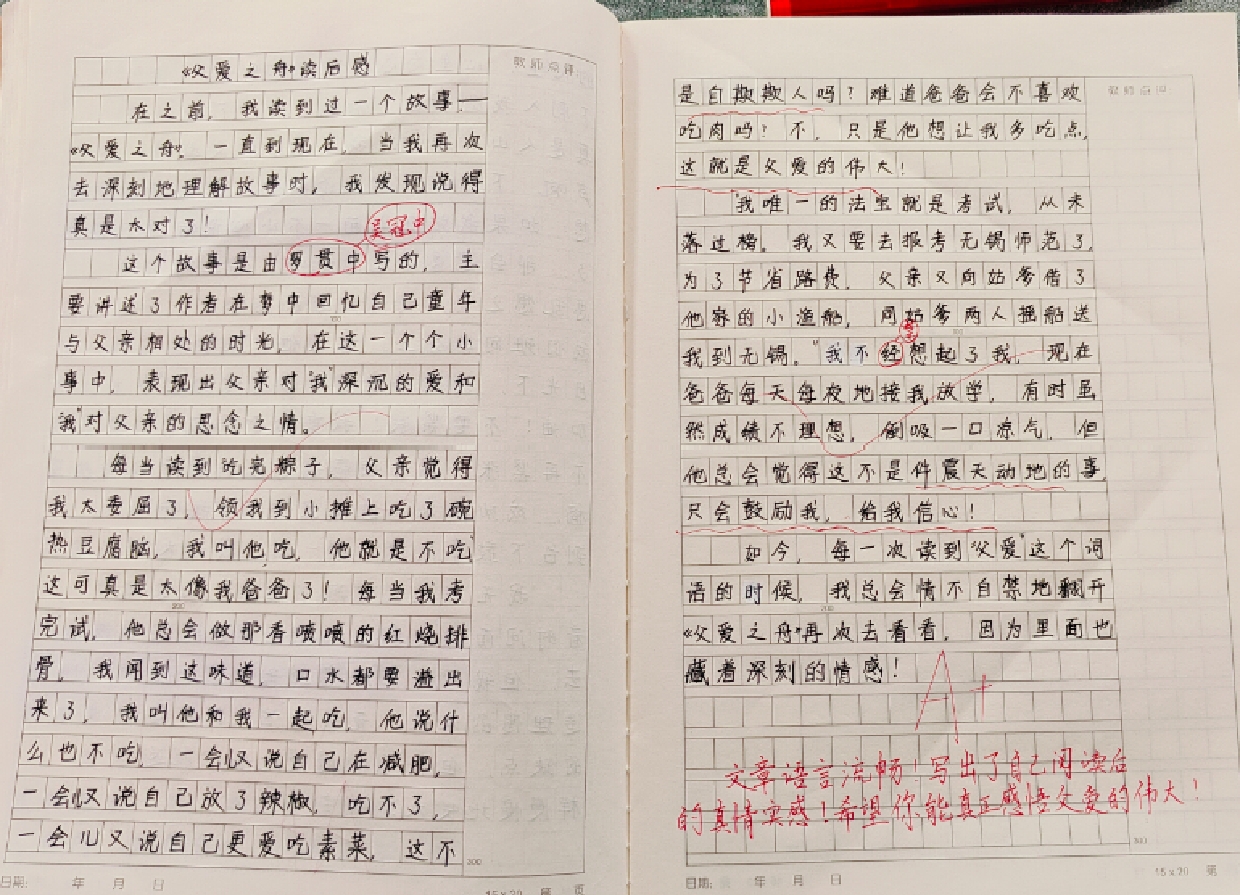 《父爱之舟》读后感
教师点评
在之前，我读到过一个故事——
《父爱之舟》。一直到现在，当我再次
去深刻地理解故事时，我发现说得
真是太对了！
吴冠中
这个故事是由罗贯中写的，主
要讲述了作者在梦中回忆自己童年
与父亲相处的时光，在这一个个小
事中，表现出父亲对“我”深沉的爱和
“我”对父亲的思念之情。
每当读到吃完粽子，父亲觉得
我太委屈了，领我到小摊上吃了碗
热豆腐脑，我叫他吃，他就是不吃
这可真是太像我爸爸了！每当我考
完试，他总会做那香喷喷的红烧排
骨，我闻到这味道，口水都要溢出
来了，我叫他和我一起吃，他说什
么也不吃，一会儿又说自己在减肥，
一会儿又说自己放了辣椒，吃不了，
一会儿又说自己更爱吃素菜，这不
300
日期： 年 月 日
15×20 第 页
是自欺欺人吗？难道爸爸会不喜欢
吃肉吗？不，只是他想让我多吃点，
这就是父爱的伟大！
“我唯一的法宝就是考试，从未
落过榜，我又要去报考无锡师范了，
为了节省路费，父亲又向姑爹借了
他家的小渔船，同姑爹两人摇船送
我到无锡。”我不经想起了我，现在
禁
爸爸每天每夜地接我放学，有时虽
然成绩不理想，倒吸一口凉气，但
他总会觉得这不是件震天动地的事，
只会鼓励我，给我信心！
如今，每一次读到“父爱”这个词
语的时候，我总会情不自禁地翻开
200
《父爱之舟》再次去看看，因为里面也
藏着深刻的情感！
A+
文章语言流畅！写出了自己阅读后
的真情实感！希望你能真正感悟父爱的伟大！
300
日期： 年 月 日
15×20 第